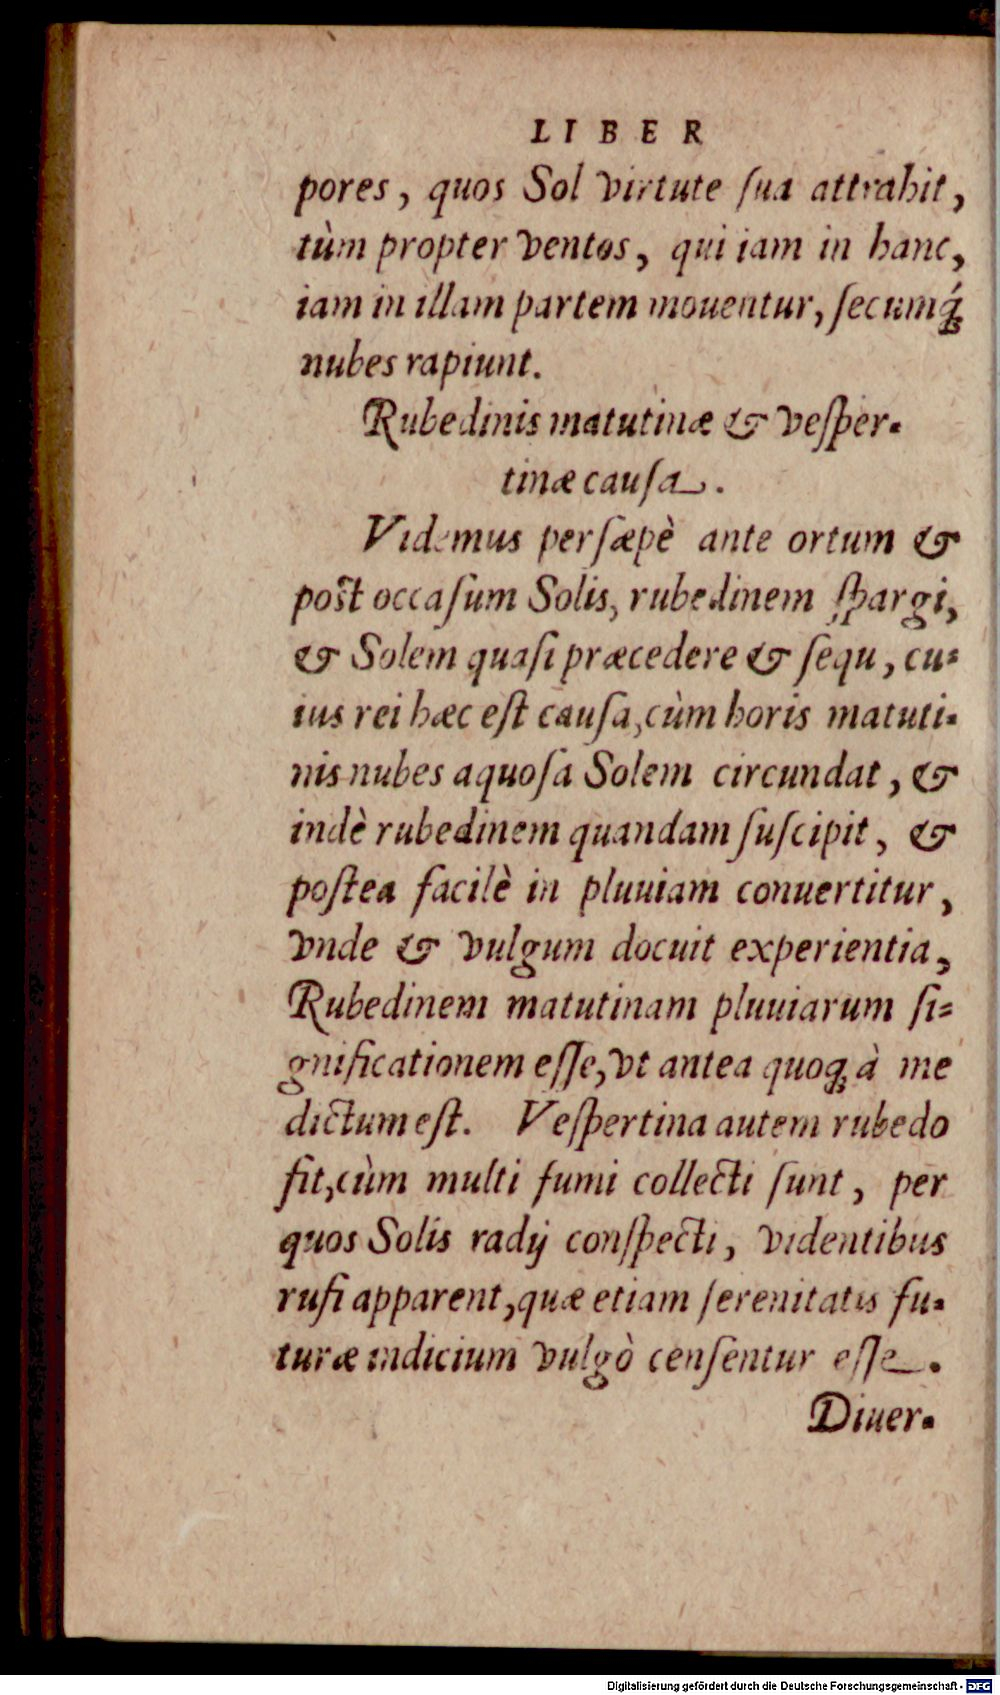 LIBER
pores, quos Sol virtute ſua attrahit,
tùm propter ventos, qui iam in hanc,
iam in illam partem mouentur, ſecumq́;
nubes rapiunt.
Rubedinis matutinæ & veſper-
tinæ cauſa.
Videmus perſæpè ante ortum &
poſt occaſum Solis, rubedinem ſpargi,
& Solem quaſi præcedere & ſequ, cu-
ius rei hæc eſt cauſa, cùm horis matuti-
nis nubes aquoſa Solem circundat, &
indè rubedinem quandam ſuſcipit, &
poſtea facilè in pluuiam conuertitur,
vnde & vulgum docuit experientia,
Rubedinem matutinam pluuiarum ſi-
gnificationem eſſe, vt antea quoq; à me
dictum eſt. Veſpertina autem rubedo
fit, cùm multi fumi collecti ſunt, per
quos Solis radij conſpecti, videntibus
rufi apparent, quæ etiam ſerenitatis fu-
turæ indicium vulgò cenſentur eſſe.
Diuer-
Digitalisierung gefördert durch die Deutsche Forschungsgemeinschaft - DFG